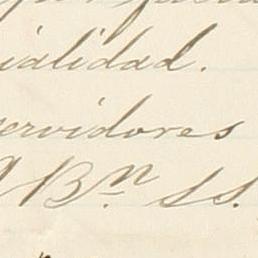 ialidad.
ervidores
Bn SS.